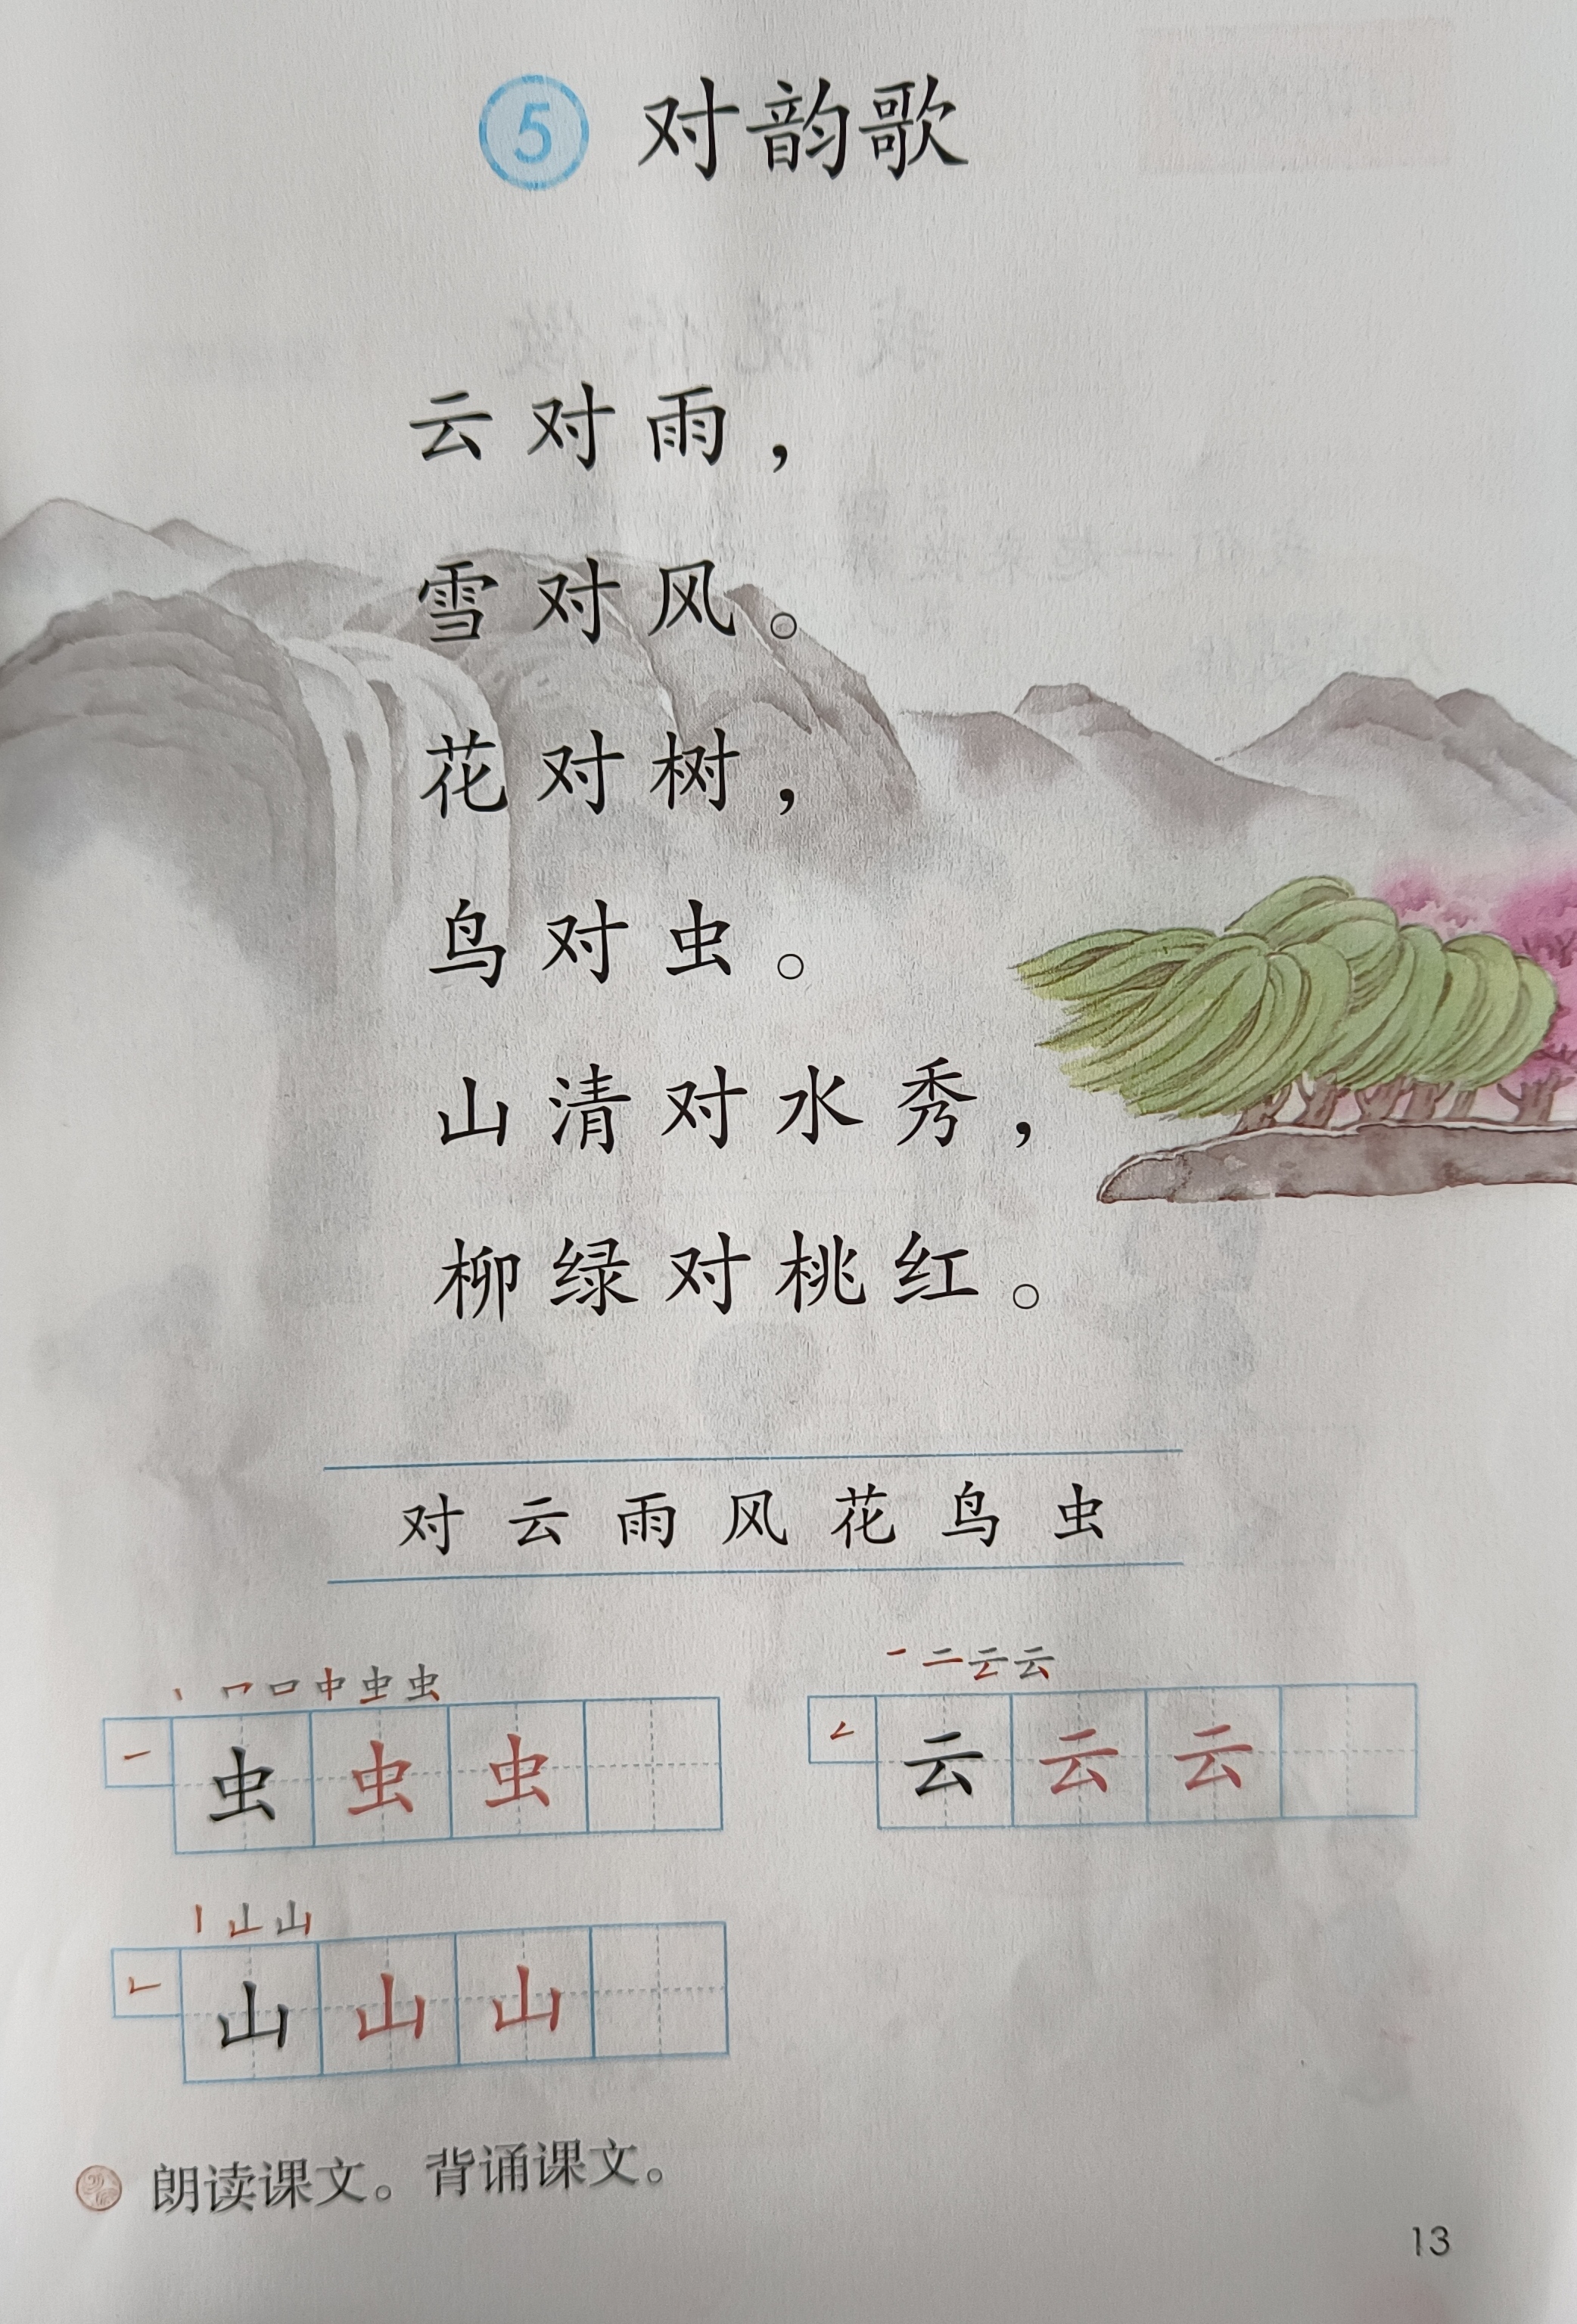 5 对韵歌
云对雨，
雪对风。
花对树，
鸟对虫。
山清对水秀，
柳绿对桃红。
对 云 雨 风 花 鸟 虫
虫 虫 虫
云 云 云
山 山 山
朗读课文。背诵课文。
13